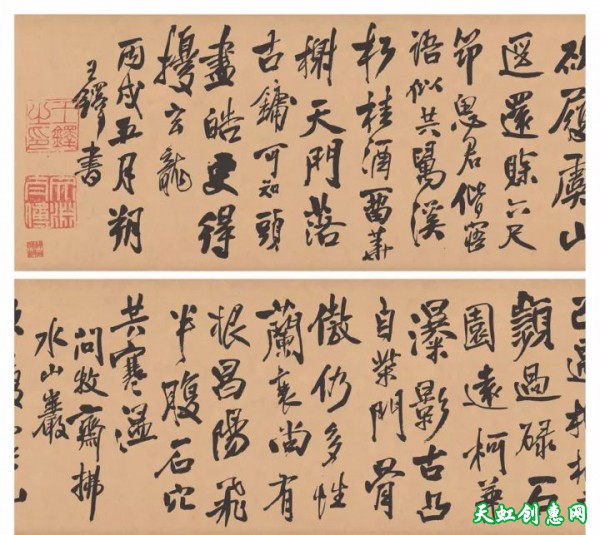 履虞山
還賒六尺
筇思君偕寤
語似共驀溪
松桂酒罍華
榭天門落
古鏞可知頭
盡皓更得
擾玄龍
丙戌五月朔
王鐸書
王鐸之印
過
過碌石
園遠柯葉
瀑影古凸
自柴門骨
傲仍多性
蘭衰尚有
根昌陽飛
半腹石穴
共寒溫
問牧齋拂
水山巖
天虹创惠网